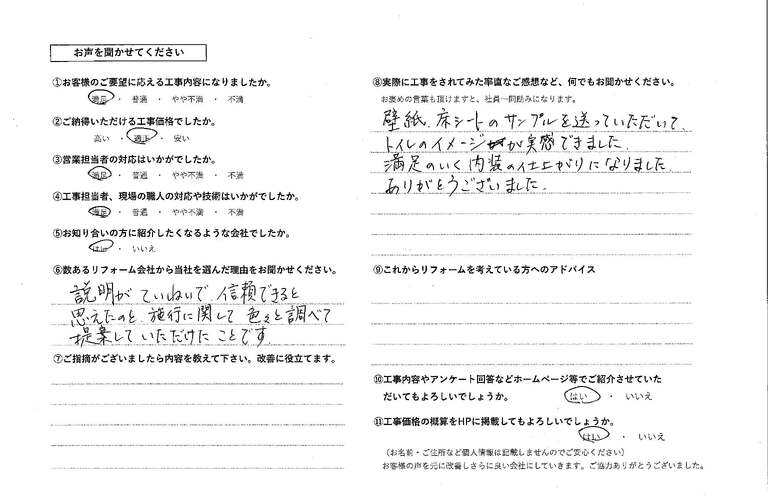 お声を聞かせてください
①お客様のご要望に応える工事内容になりましたか。
満足 ・ 普通 ・ やや不満 ・ 不満
②ご納得いただける工事価格でしたか。
高い ・ 適正 ・ 安い
③営業担当者の対応はいかがでしたか。
満足 ・ 普通 ・ やや不満 ・ 不満
④工事担当者、現場の職人の対応や技術はいかがでしたか。
満足 ・ 普通 ・ やや不満 ・ 不満
⑤お知り合いの方に紹介したくなるような会社でしたか。
はい ・ いいえ
⑥数あるリフォーム会社から当社を選んだ理由をお聞かせください。
説明がていねいで、信頼できると
思えたのと、施行に関して色々と調べて
提案していただけたことです。
⑦ご指摘がございましたら内容を教えて下さい。改善に役立てます。
⑧実際に工事をされてみた率直なご感想など、何でもお聞かせください。
お褒めの言葉も頂けますと、社員一同励みになります。
壁紙、床シートのサンプルを送っていただいて、
トイレのイメージが実感できました。
満足のいく内装の仕上がりになりました。
ありがとうございました。
⑨これからリフォームを考えている方へのアドバイス
⑩工事内容やアンケート回答などホームページ等でご紹介させていた
だいてもよろしいでしょうか。 はい ・ いいえ
⑪工事価格の概算をHPに掲載してもよろしいでしょうか。
はい ・ いいえ
（お名前・ご住所など個人情報は記載しませんのでご安心ください）
お客様の声を元に改善しさらに良い会社にしていきます。ご協力ありがとうございました。